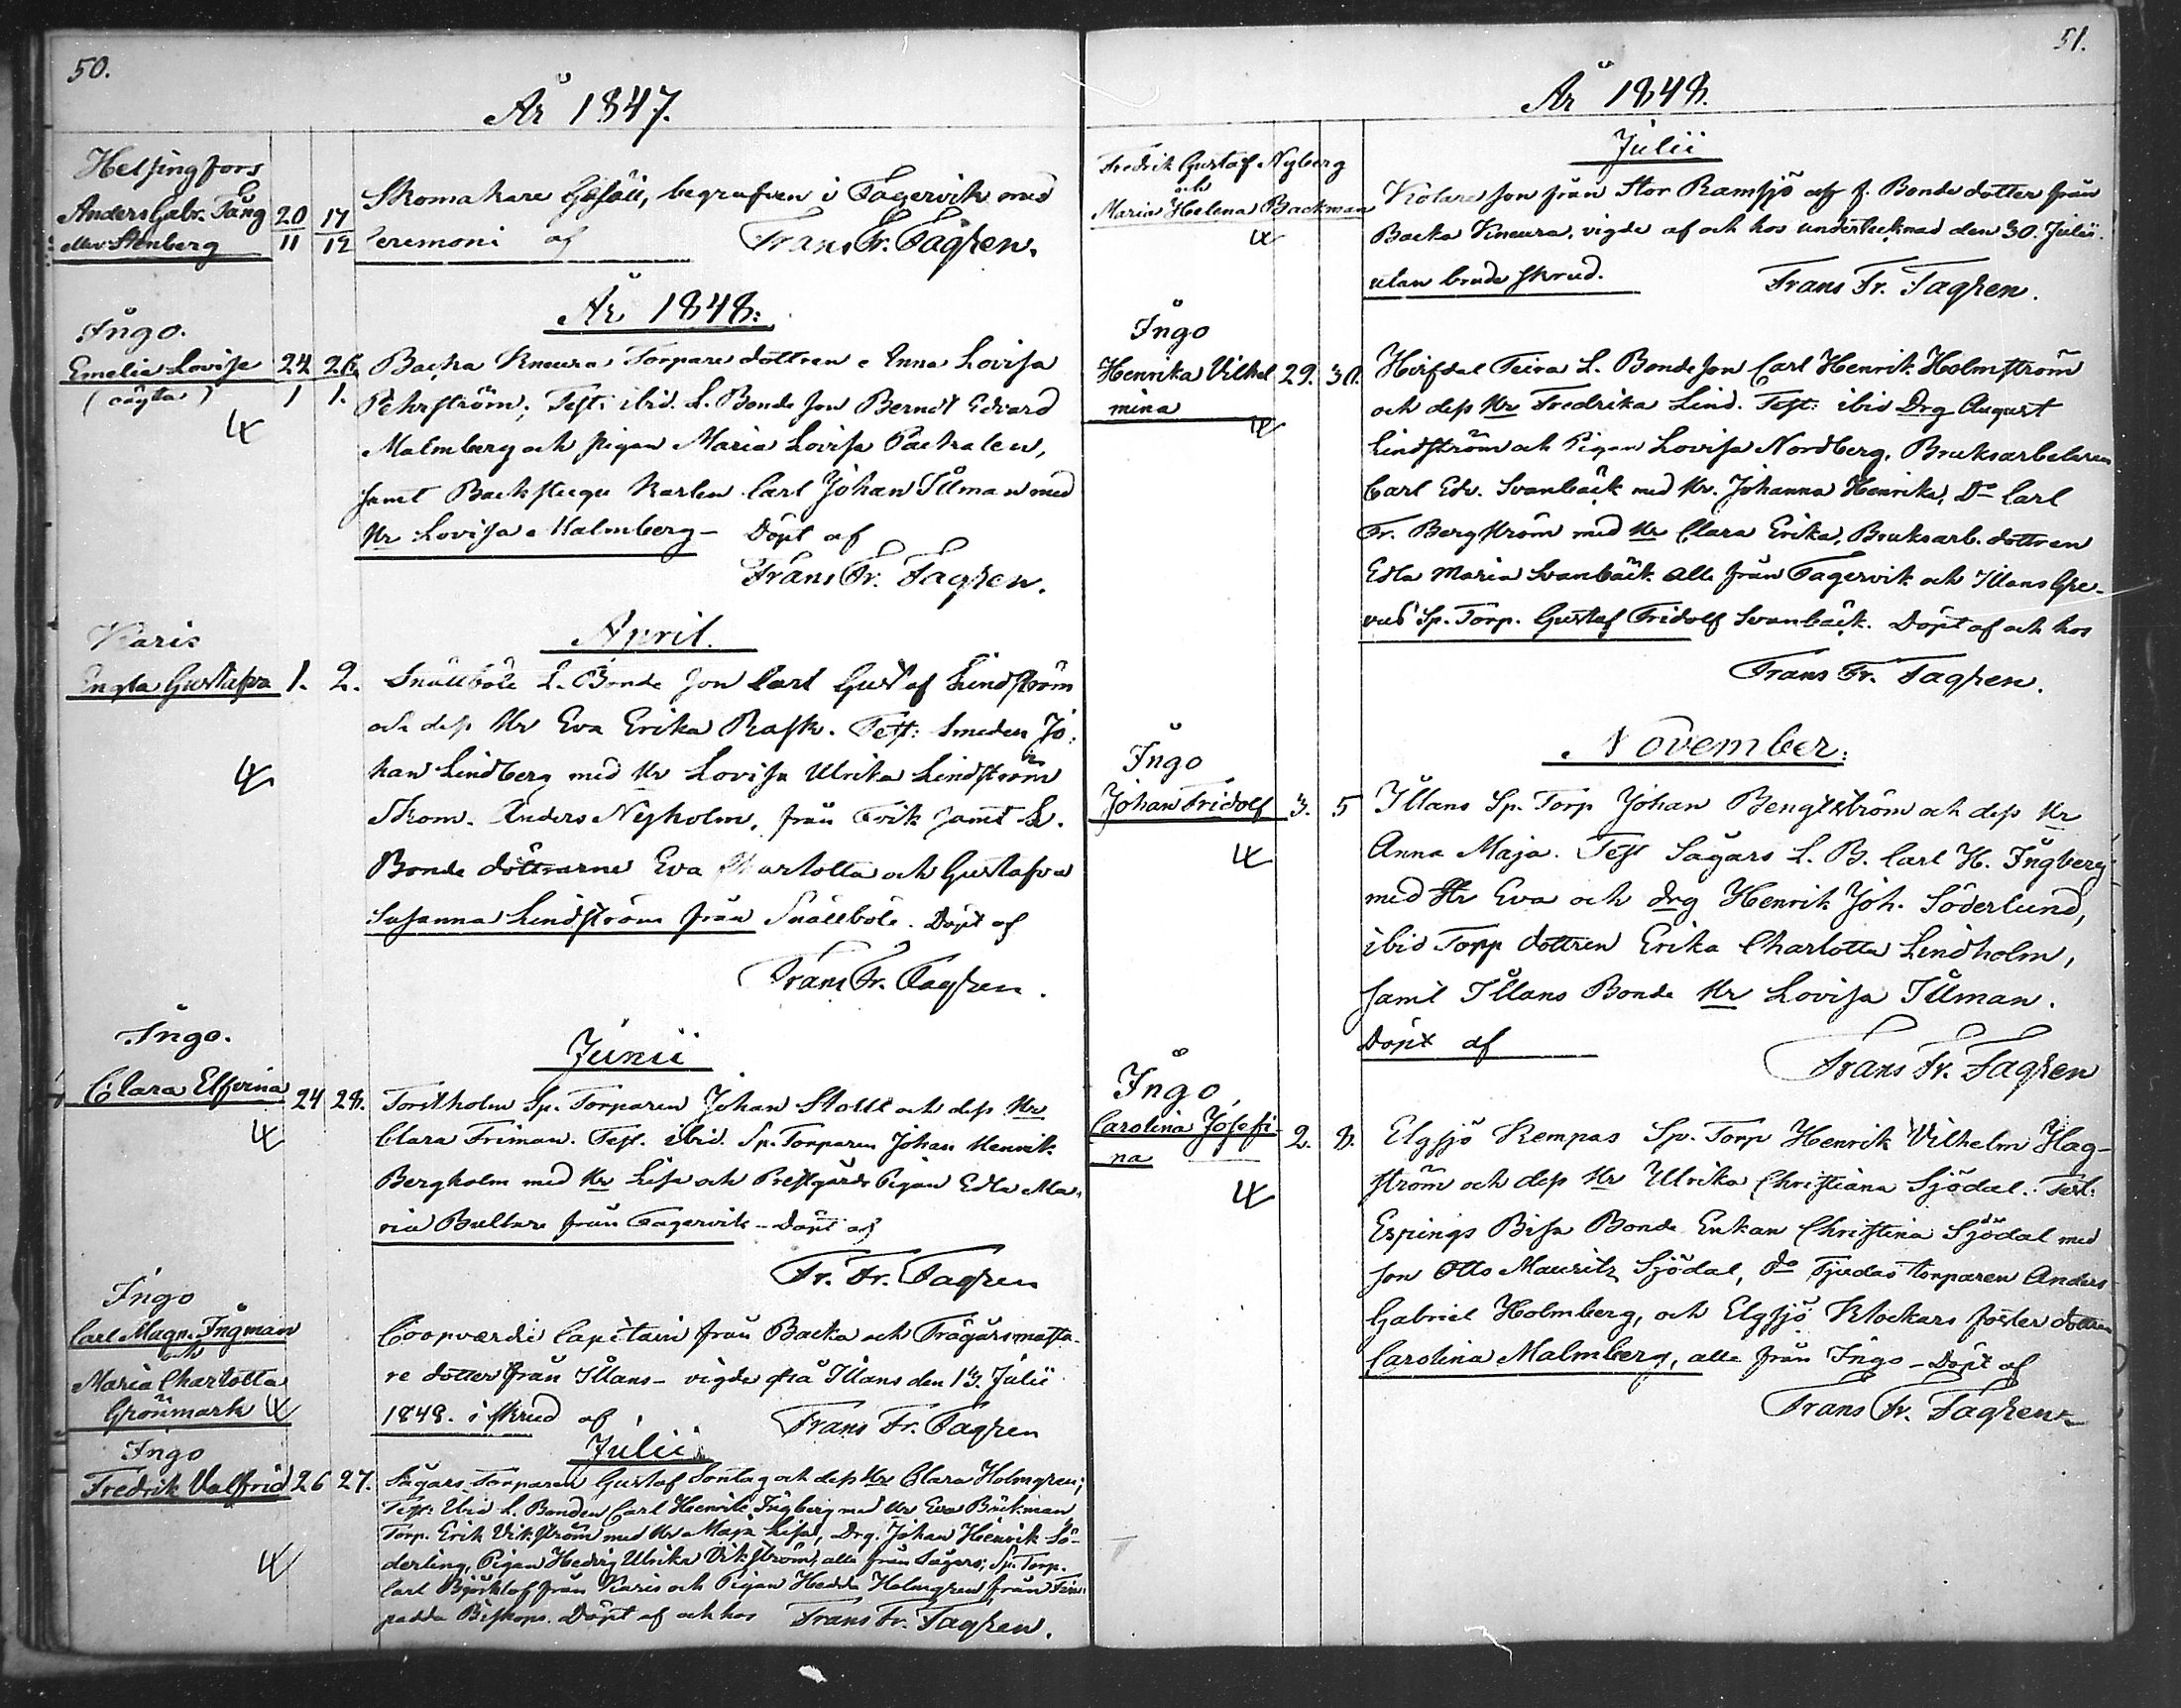 50.
År 1847.
Helsingfors
Anders Gabr. Tång 20 17 Skomakare Gesäll, begrafven i Fagervik med
eller Stenberg 11 12 Ceremoni af Frans Fr. Tagren.
År 1848:
Ingo.
Emelia Lovisa 24 26 Backa Kneura Torpare dottren Anna Lovisa
(oägta) 1 1. Pehrström; Test: ibid. L. Bonde Son Berndt Edvard
Malmberg och pigan Maria Lovisa Packalen,
samt Backstugu Karlen Carl Johan Illman med
Hr Lovisa Malmberg – Döpt af
Frans Fr. Tagren.
April.
Karis
Engla Gustafva 1. 2. Snällböle L. Bonde Son Carl Gustaf Lindström
och dess Hr Eva Erika Rask. Test: Smeden Jo-
han Lindberg med Hr Lovisa Ulrika Lindström
Skom. Anders Nyholm, från Fvik samt L.
Bonde döttrarne Eva Charlotta och Gustafva
Susanna Lindström från Snällböle. Döpt af
Frans Fr. Tagren.
Junii
Ingo.
Clara Elfvina 24 28. Torstholm Sp. Torparen Johan Stolle och dess Hr
Clara Friman. Test. ibid. Sp. Torparen Johan Henrik
Bergholm med Hr Lisa och Prestgårds Pigan Edla Ma-
ria Bullare från Fagervik – Döpt af
Fr. Fr. Tagren
Ingo
Carl Magn. Ingman Coopværdi Capitain från Backa och Trägårsmästa-
och
Maria Charlotta re dotter från Illans – vigde på Illans den 13. Julii
Grönmark 1848. i skrud af Frans Fr. Tagren
Julii
Ingo
Fredrik Valfrid 26 27. Sågars Torparen Gustaf Sontag och dess Hr Clara Holmgren;
Test: Ibid L. Bonden Carl Henrik Ingberg med Hr Eva Bäckman
Torp. Erik Vikström med Hr Maja Lisa, Drg. Johan Henrik Sö-
derling, Pigan Hedvig Ulrika Vikström, alla från Sågars; Sp. Torp.
Carl Björklöf från Karis och Pigan Hedda Holmgren från Fin-
padda Biskops. Döpt af och hos Frans Fr. Tagren.
51.
År 1848.
Julii
Fredrik Gustaf Nyberg
och
Maria Helena Backman Kolare son från Stor Ramsjö och f. Bonde dotter från
Backa Kneura, vigde af och hos undertecknad den 30. Julii.
utan brude skrud. Frans Fr. Tagren.
Ingo
Henrika Vilhel 29. 30. Hirsdal Teira L. Bonde Son Carl Henrik Holmström
mina och dess Hr Fredrika Lind. Test: ibid Drg August
Lindström och Pigan Lovisa Nordberg, Bruksarbetaren
Carl Edv. Svanbäck med Hr. Johanna Henrika, Do Carl
Fr. Bergström med Hr Clara Erika, Bruksarb. dottren
Edla Maria Svanbäck alla från Fagervik och Illans Gre-
vas Sp. Torp. Gustaf Fridolf Svanbäck. Döpt af och hos
Frans Fr. Tagren.
November:
Ingo
Johan Fridolf 3. 5 Illans Sp. Torp Johan Bengtström och dess Hr
Anna Maja. Test Sågars L. B. Carl H. Ingberg
med Hr Eva och drg Henrik Joh. Söderlund,
ibid Torp dottren Erika Charlotta Lindholm,
samt Illans Bonde Hr Lovisa Illman.
Döpt af
Frans Fr. Tagren
Ingo
Carolina Josefi- 2. 8. Elgsjö Kempas Sp. Torp Henrik Vilhelm Hag-
na ström och dess Hr Ulrika Christiana Sjödal. Test:
Espings Bisa Bonde Enkan Christina Sjödal med
son Otto Mauritz Sjödal, do Tjudas torparen Anders
Gabriel Holmberg, och Elgsjö Klockars foster dottren
Carolina Malmberg, alla från Ingo – Döpt af
Frans Fr. Tagren